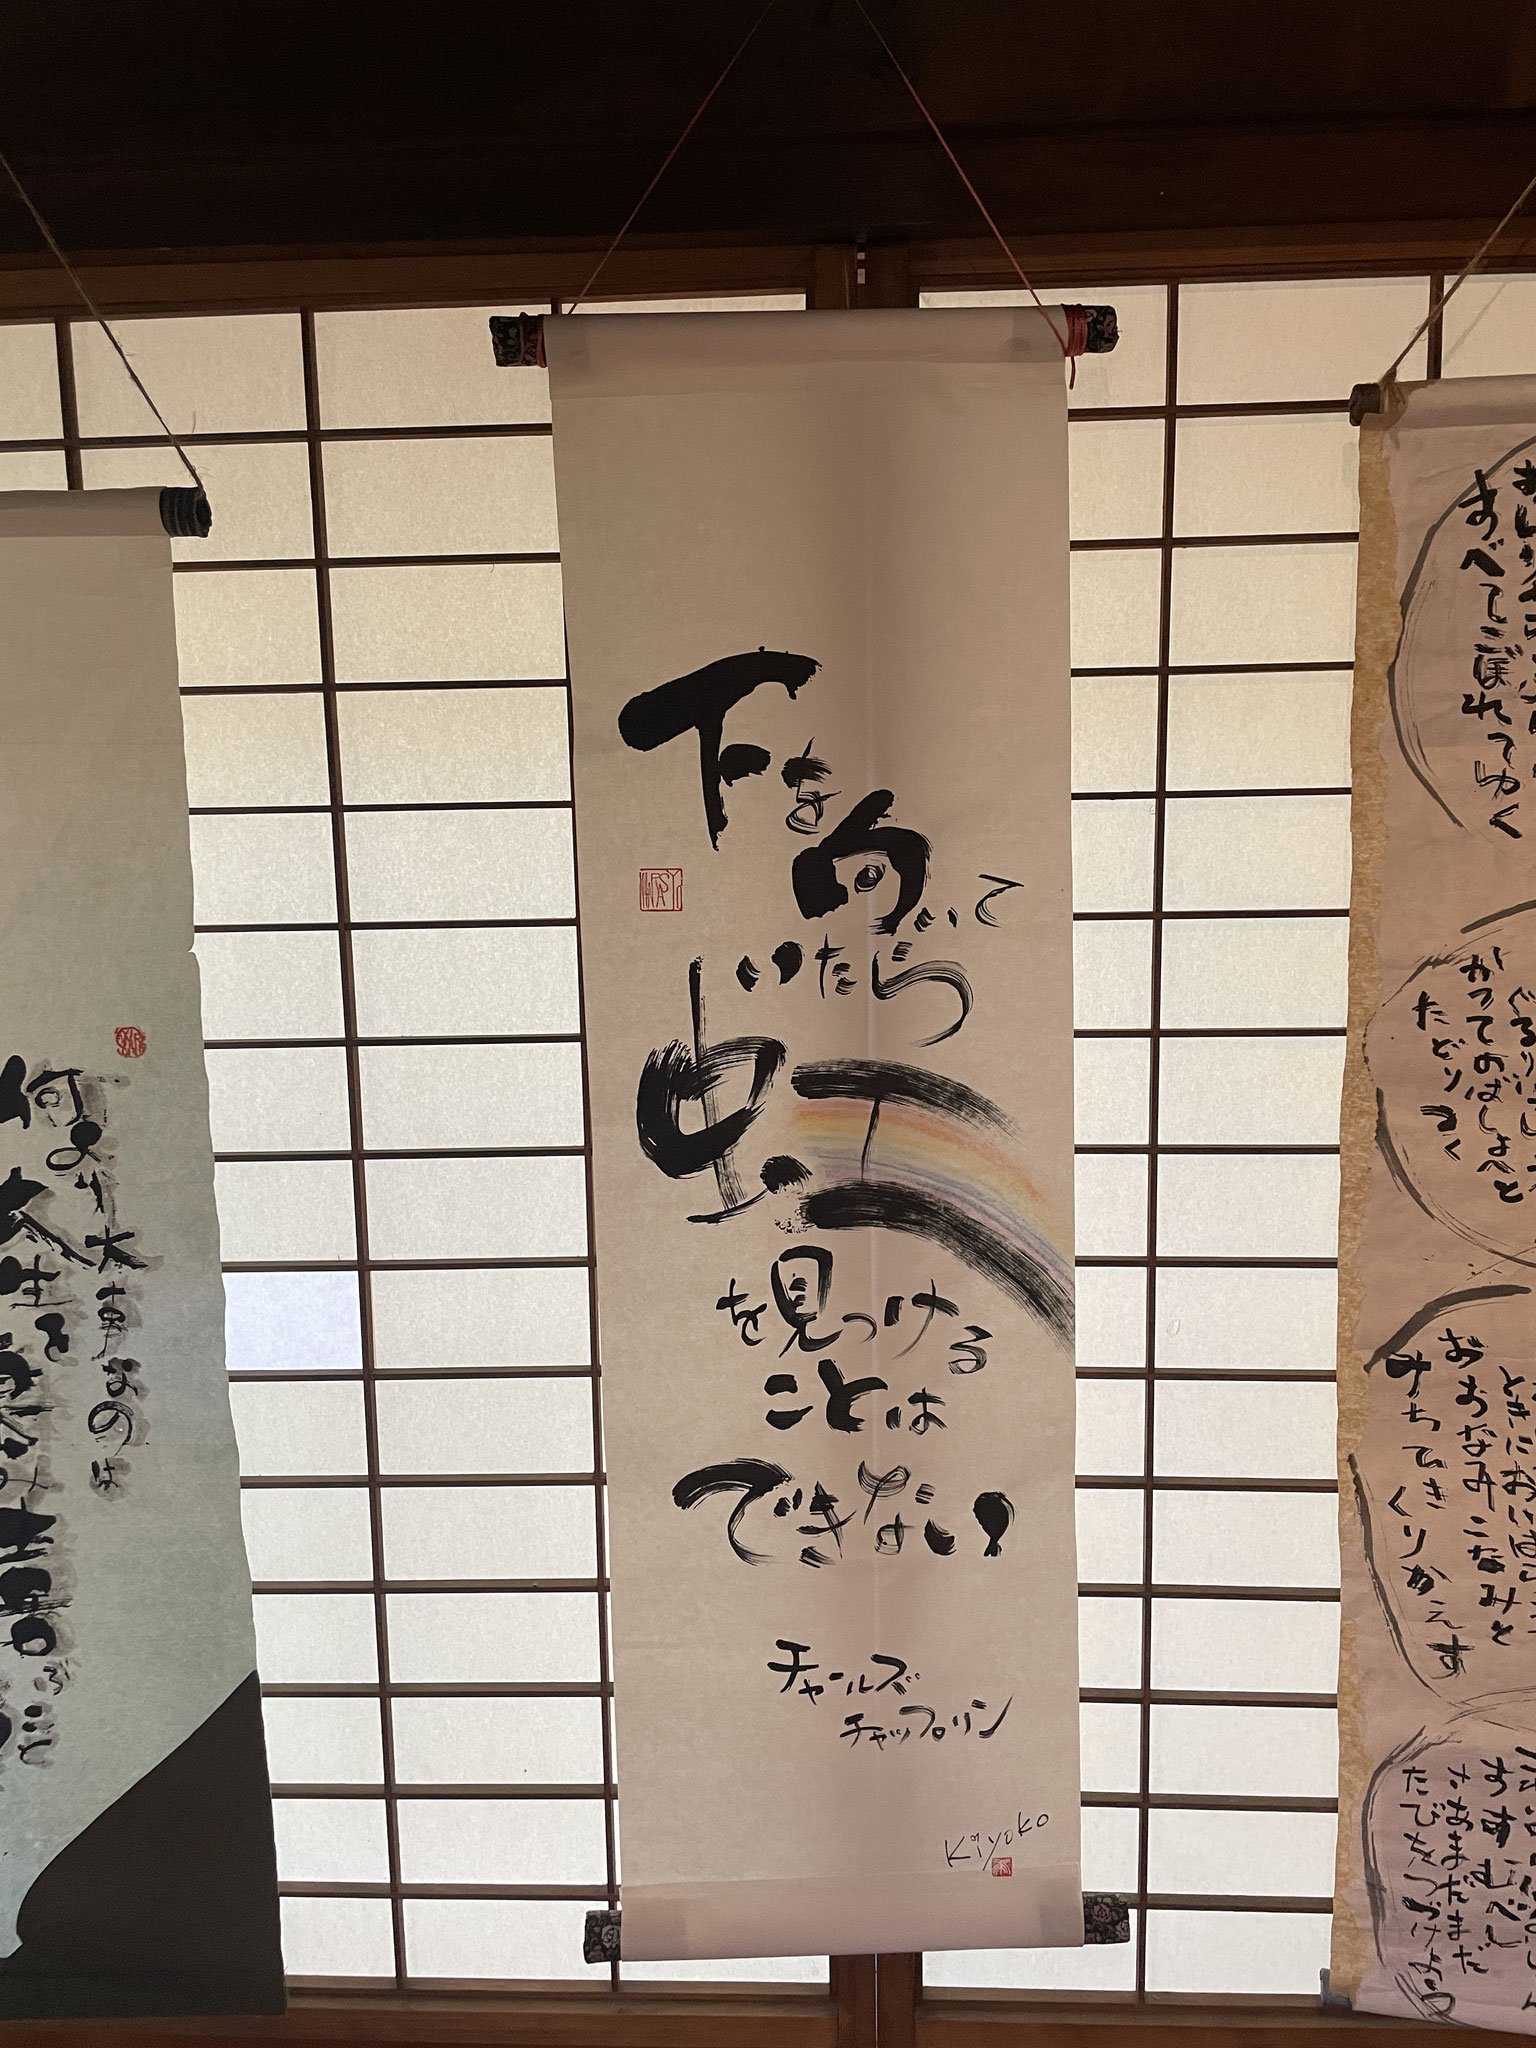 下を向いて
いたら
虹
を見つける
ことは
できない
チャールズ
チャップリン
Kiyoko
何より大事なのは
人生を
すべてこぼれてゆく
かつてのばしょへと
たどりつく
おおなみこなみと
みちてきくりかえす
なあまだまだ
たびをつづけよう